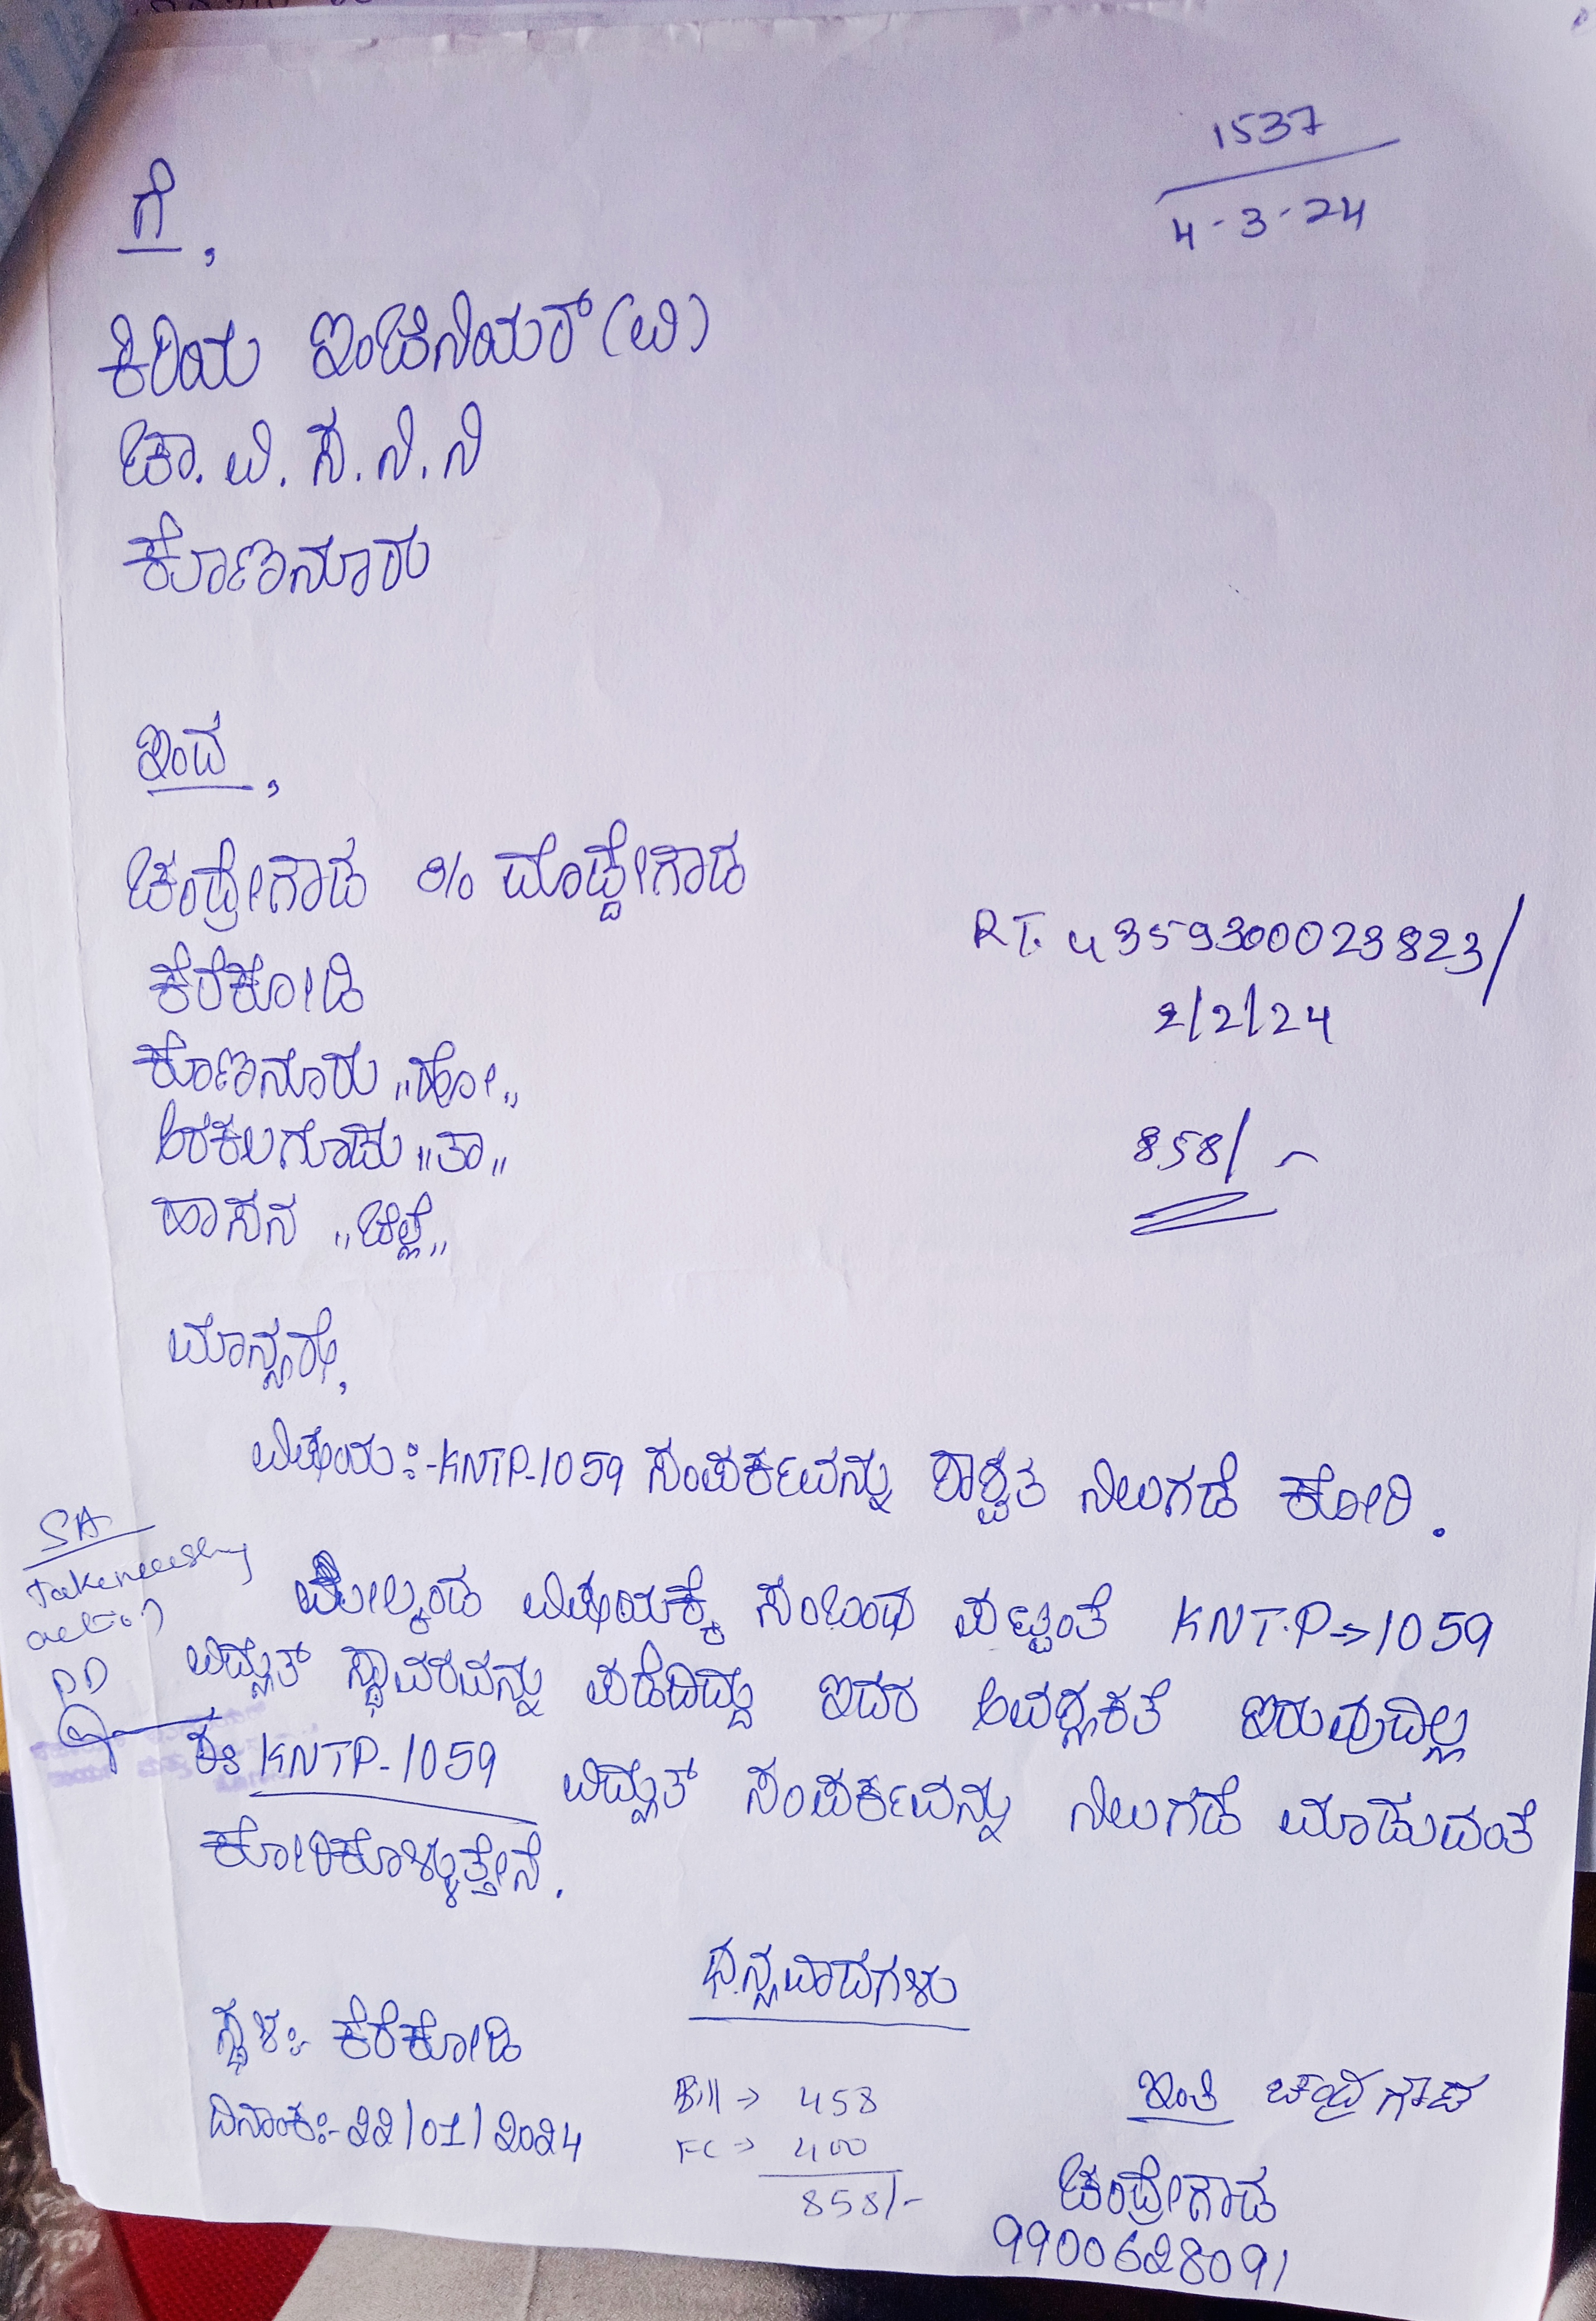 1537
4-3-24
ಗೆ,
ಕಿರಿಯ ಇಂಜಿನಿಯರ್ (ವಿ)
ಚಾ.ವಿ.ಸ.ನಿ.ನಿ
ಕೊಣನೂರು
ಇಂದ,
ಚಂದ್ರೇಗೌಡ S/o ದೊಡ್ಡೇಗೌಡ
ಕೆರೆಕೋಡಿ
RT. 4359300023823/
ಕೊಣನೂರು "ಹೋ"
2/2/24
ಅರಕಲಗೂಡು "ತಾ"
858/-
ಹಾಸನ "ಜಿಲ್ಲೆ"
ಮಾನ್ಯರೇ,
ವಿಷಯ:-KNTP-1059 ಸಂಪರ್ಕವನ್ನು ಶಾಶ್ವತ ನಿಲುಗಡೆ ಕೋರಿ.
SA
Take necessary
action
ಮೇಲ್ಕಂಡ ವಿಷಯಕ್ಕೆ ಸಂಬಂಧ ಪಟ್ಟಂತೆ KNT.P→1059
ವಿದ್ಯುತ್ ಸ್ಥಾವರವನ್ನು ಪಡೆದಿದ್ದು ಇದರ ಅವಶ್ಯಕತೆ ಇರುವುದಿಲ್ಲ
ಸಂ: KNTP-1059 ವಿದ್ಯುತ್ ಸಂಪರ್ಕವನ್ನು ನಿಲುಗಡೆ ಮಾಡುವಂತೆ
ಕೋರಿಕೊಳ್ಳುತ್ತೇನೆ.
ಧನ್ಯವಾದಗಳು
ಸ್ಥಳ:- ಕೆರೆಕೋಡಿ
ದಿನಾಂಕ:-22/01/2024
Bill → 458
FC → 400
858/-
ಇಂತಿ ಚಂದ್ರಗೌಡ
ಚಂದ್ರೇಗೌಡ
9900628091